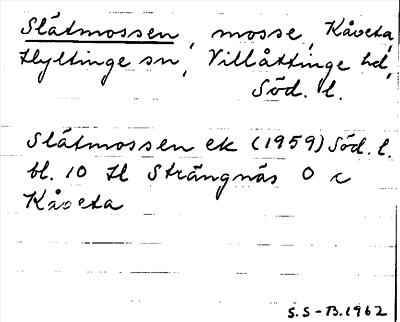 Slätmossen, mosse, Kåveta,
Hyltinge sn, Villåttinge hd,
Söd. l.
Slätmossen ek (1959) Söd. l.
bl. 10 H Strängnäs O c
Kåveta
S.S-B.1962